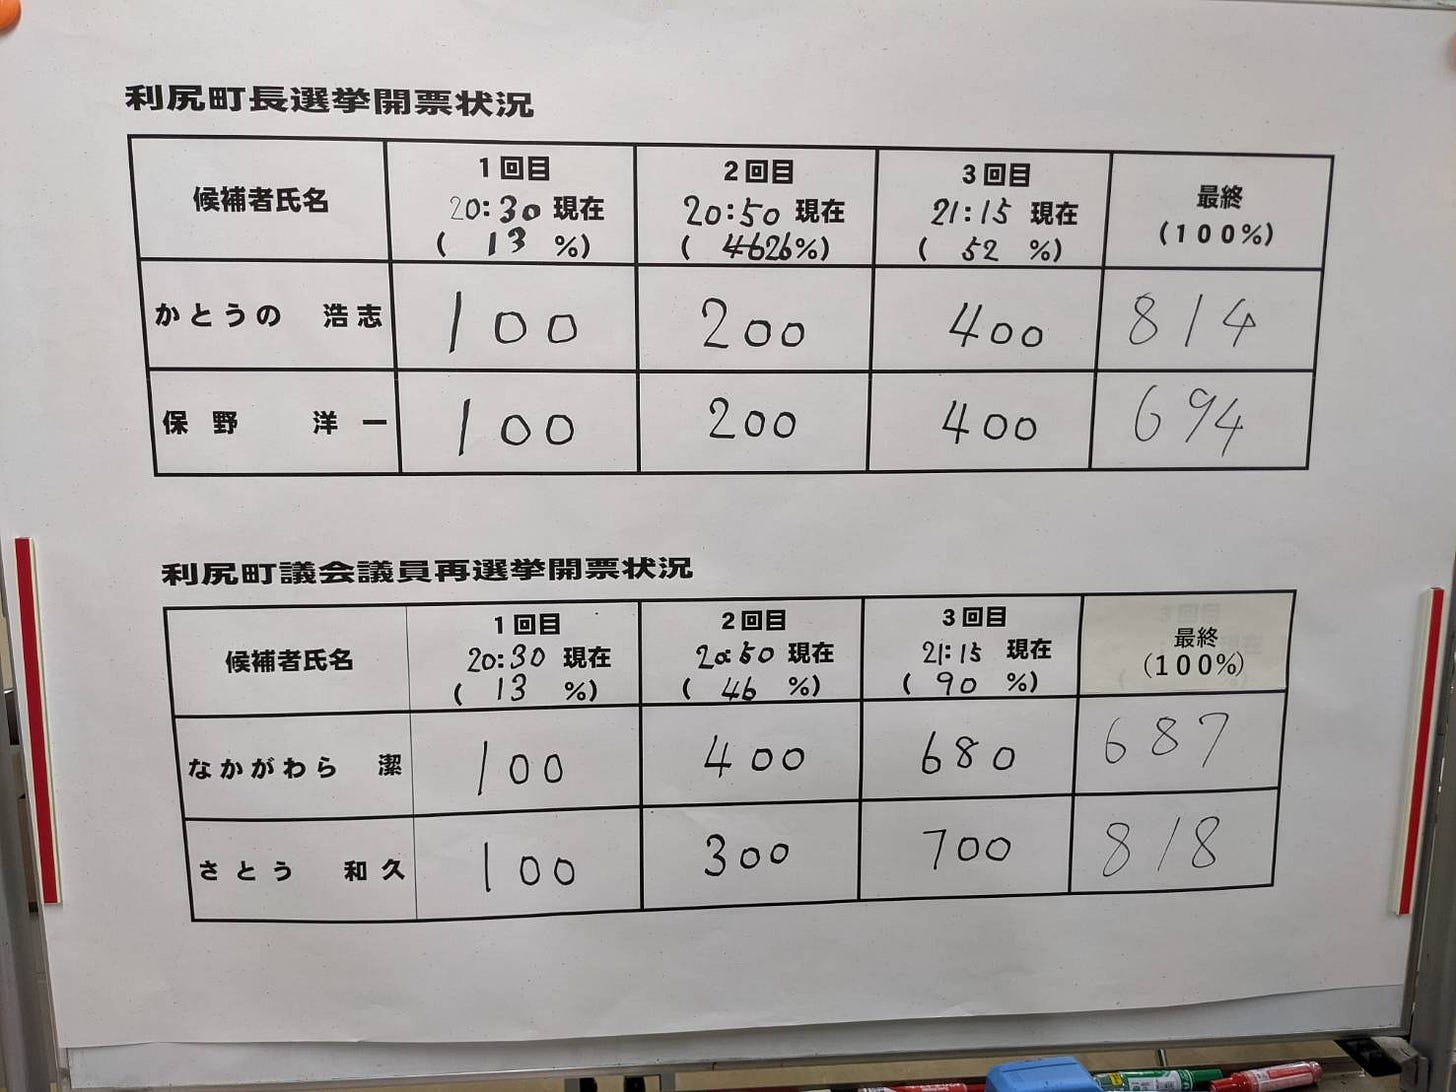 利尻町長選挙開票状況
候補者氏名
1回目
20:30 現在
( 13 %)
2回目
20:50 現在
( 4626%)
3回目
21:15 現在
( 52 %)
最終
(100%)
かとうの 浩志 100 200 400 814
保野 洋一 100 200 400 694
利尻町議会議員再選挙開票状況
候補者氏名
1回目
20:30 現在
( 13 %)
2回目
20:50 現在
( 46 %)
3回目
21:15 現在
( 90 %)
最終
(100%)
なかがわら 潔 100 400 680 687
さとう 和久 100 300 700 818